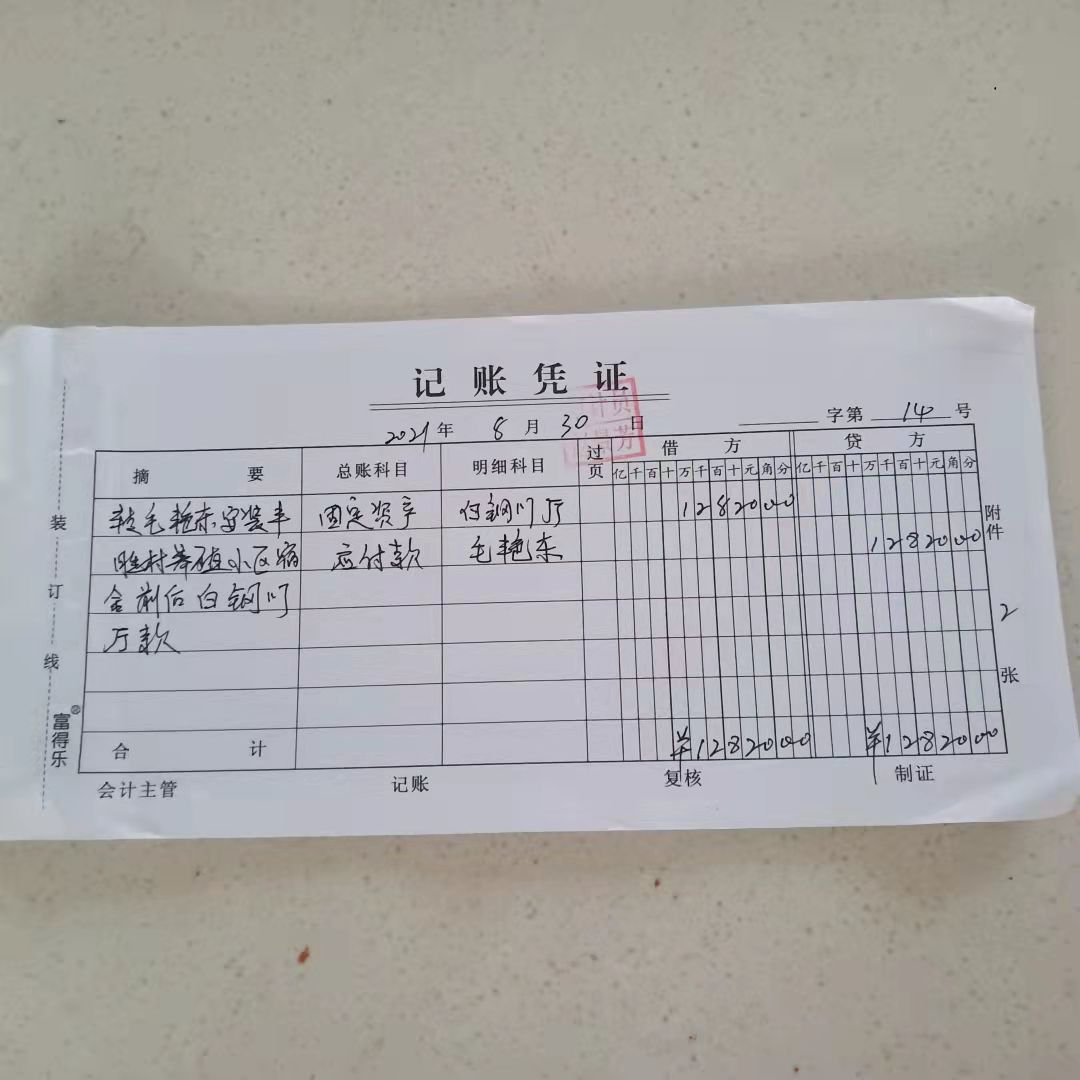 记账凭证
2021年 8月30日 字第 14 号
摘要 总账科目 明细科目 过页 借方 贷方
亿千百十万千百十元角分 亿千百十万千百十元角分
毛艳东安装丰 固定资产 白钢门厅 1282000
村养殖小区宿 应付款 毛艳东 1282000
舍前后白钢门
厅款
合计 ¥1282000 ¥1282000
附件 2 张
会计主管 记账 复核 制证
装订线
富得乐